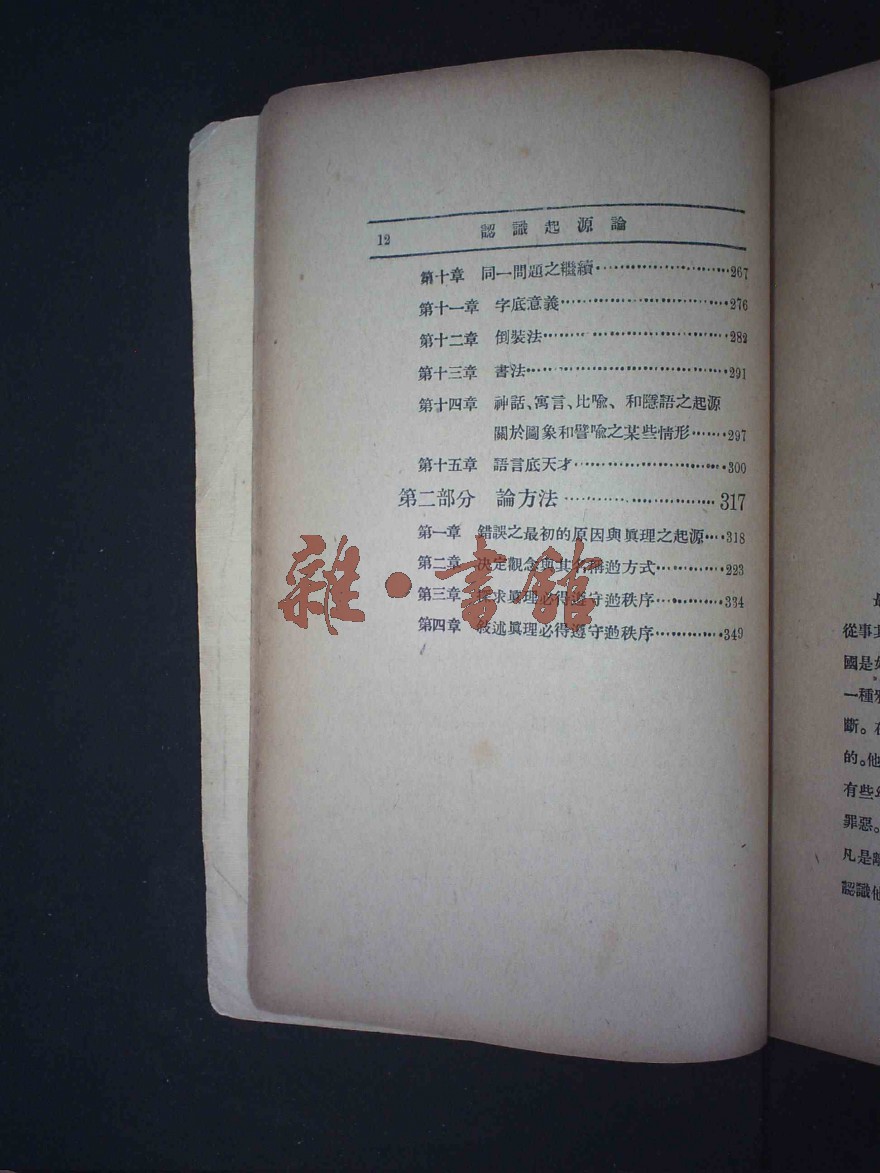 12 認識起源論
第十章 同一問題之繼續……267
第十一章 字底意義……276
第十二章 倒裝法……282
第十三章 書法……291
第十四章 神話、寓言、比喩、和隱語之起源
關於圖象和譬喩之某些情形……297
第十五章 語言底天才……300
第二部分 論方法……317
第一章 錯誤之最初的原因與眞理之起源……318
第二章 決定觀念與其名稱過方式……223
第三章 探求眞理必得遵守過秩序……334
第四章 敍述眞理必得遵守過秩序……349
雜・書館
從事
國是
一種
斷。
的。他
有些
罪惡。
凡是
認識他